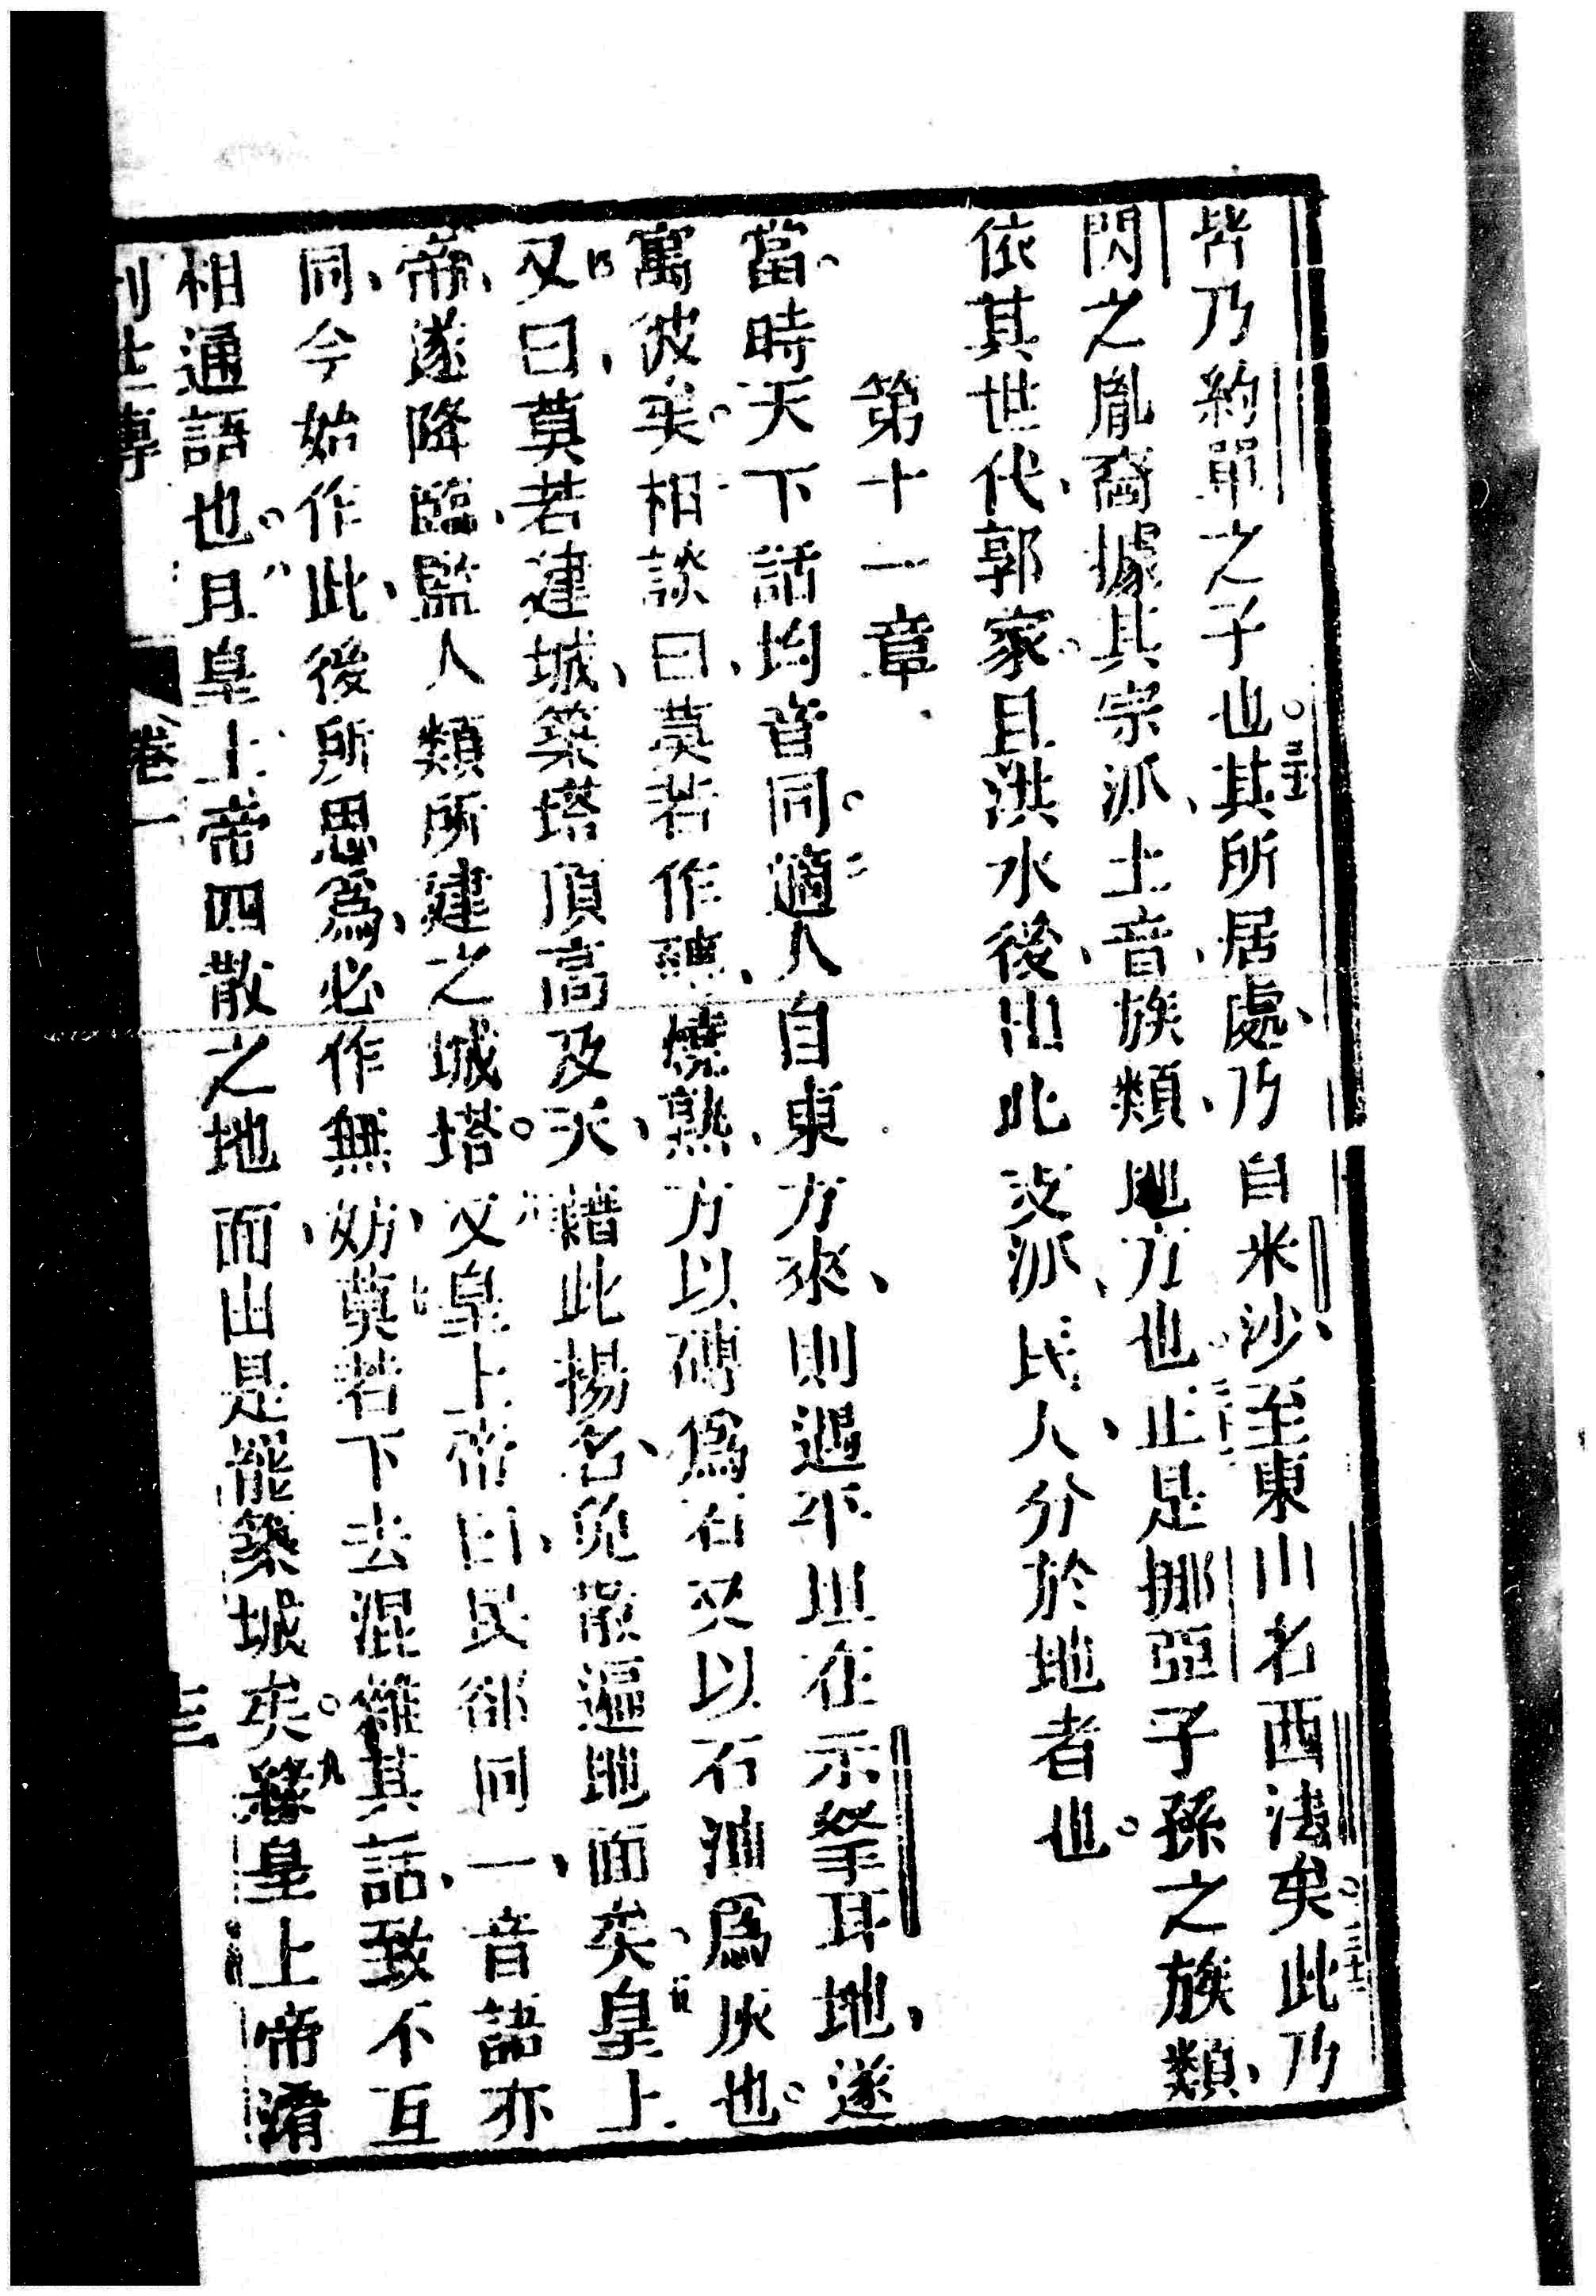 皆乃約單之子也。三十其所居處、乃自米沙、至東山名西法矣。三十一此乃
閃之胤裔、據其宗派、土音、族類、地方也。三十二止是挪亞子孫之族類、
依其世代、郭家。且洪水後、由此支派、氏人、分於地者也。
第十一章
當時天下話均音同。二適人自東方來、則遇平坦在示拏耳地、遂
寓彼矣。三相談曰、莫若作磚、燒熟、方以磚爲石、又以石油爲灰也。
四又曰、莫若建城、築塔頂高及天、藉此揚名、免散遍地面矣。五皇上
帝、遂降臨、監人類所建之城塔。六又皇上帝曰、民都同一、音語亦
同、今始作此、後所思爲、必作無妨、七莫若下去混雜其話、致不互
相通語也。八且皇上帝四散之地面、由是罷築城矣。九緣皇上帝淆
卷一
十三